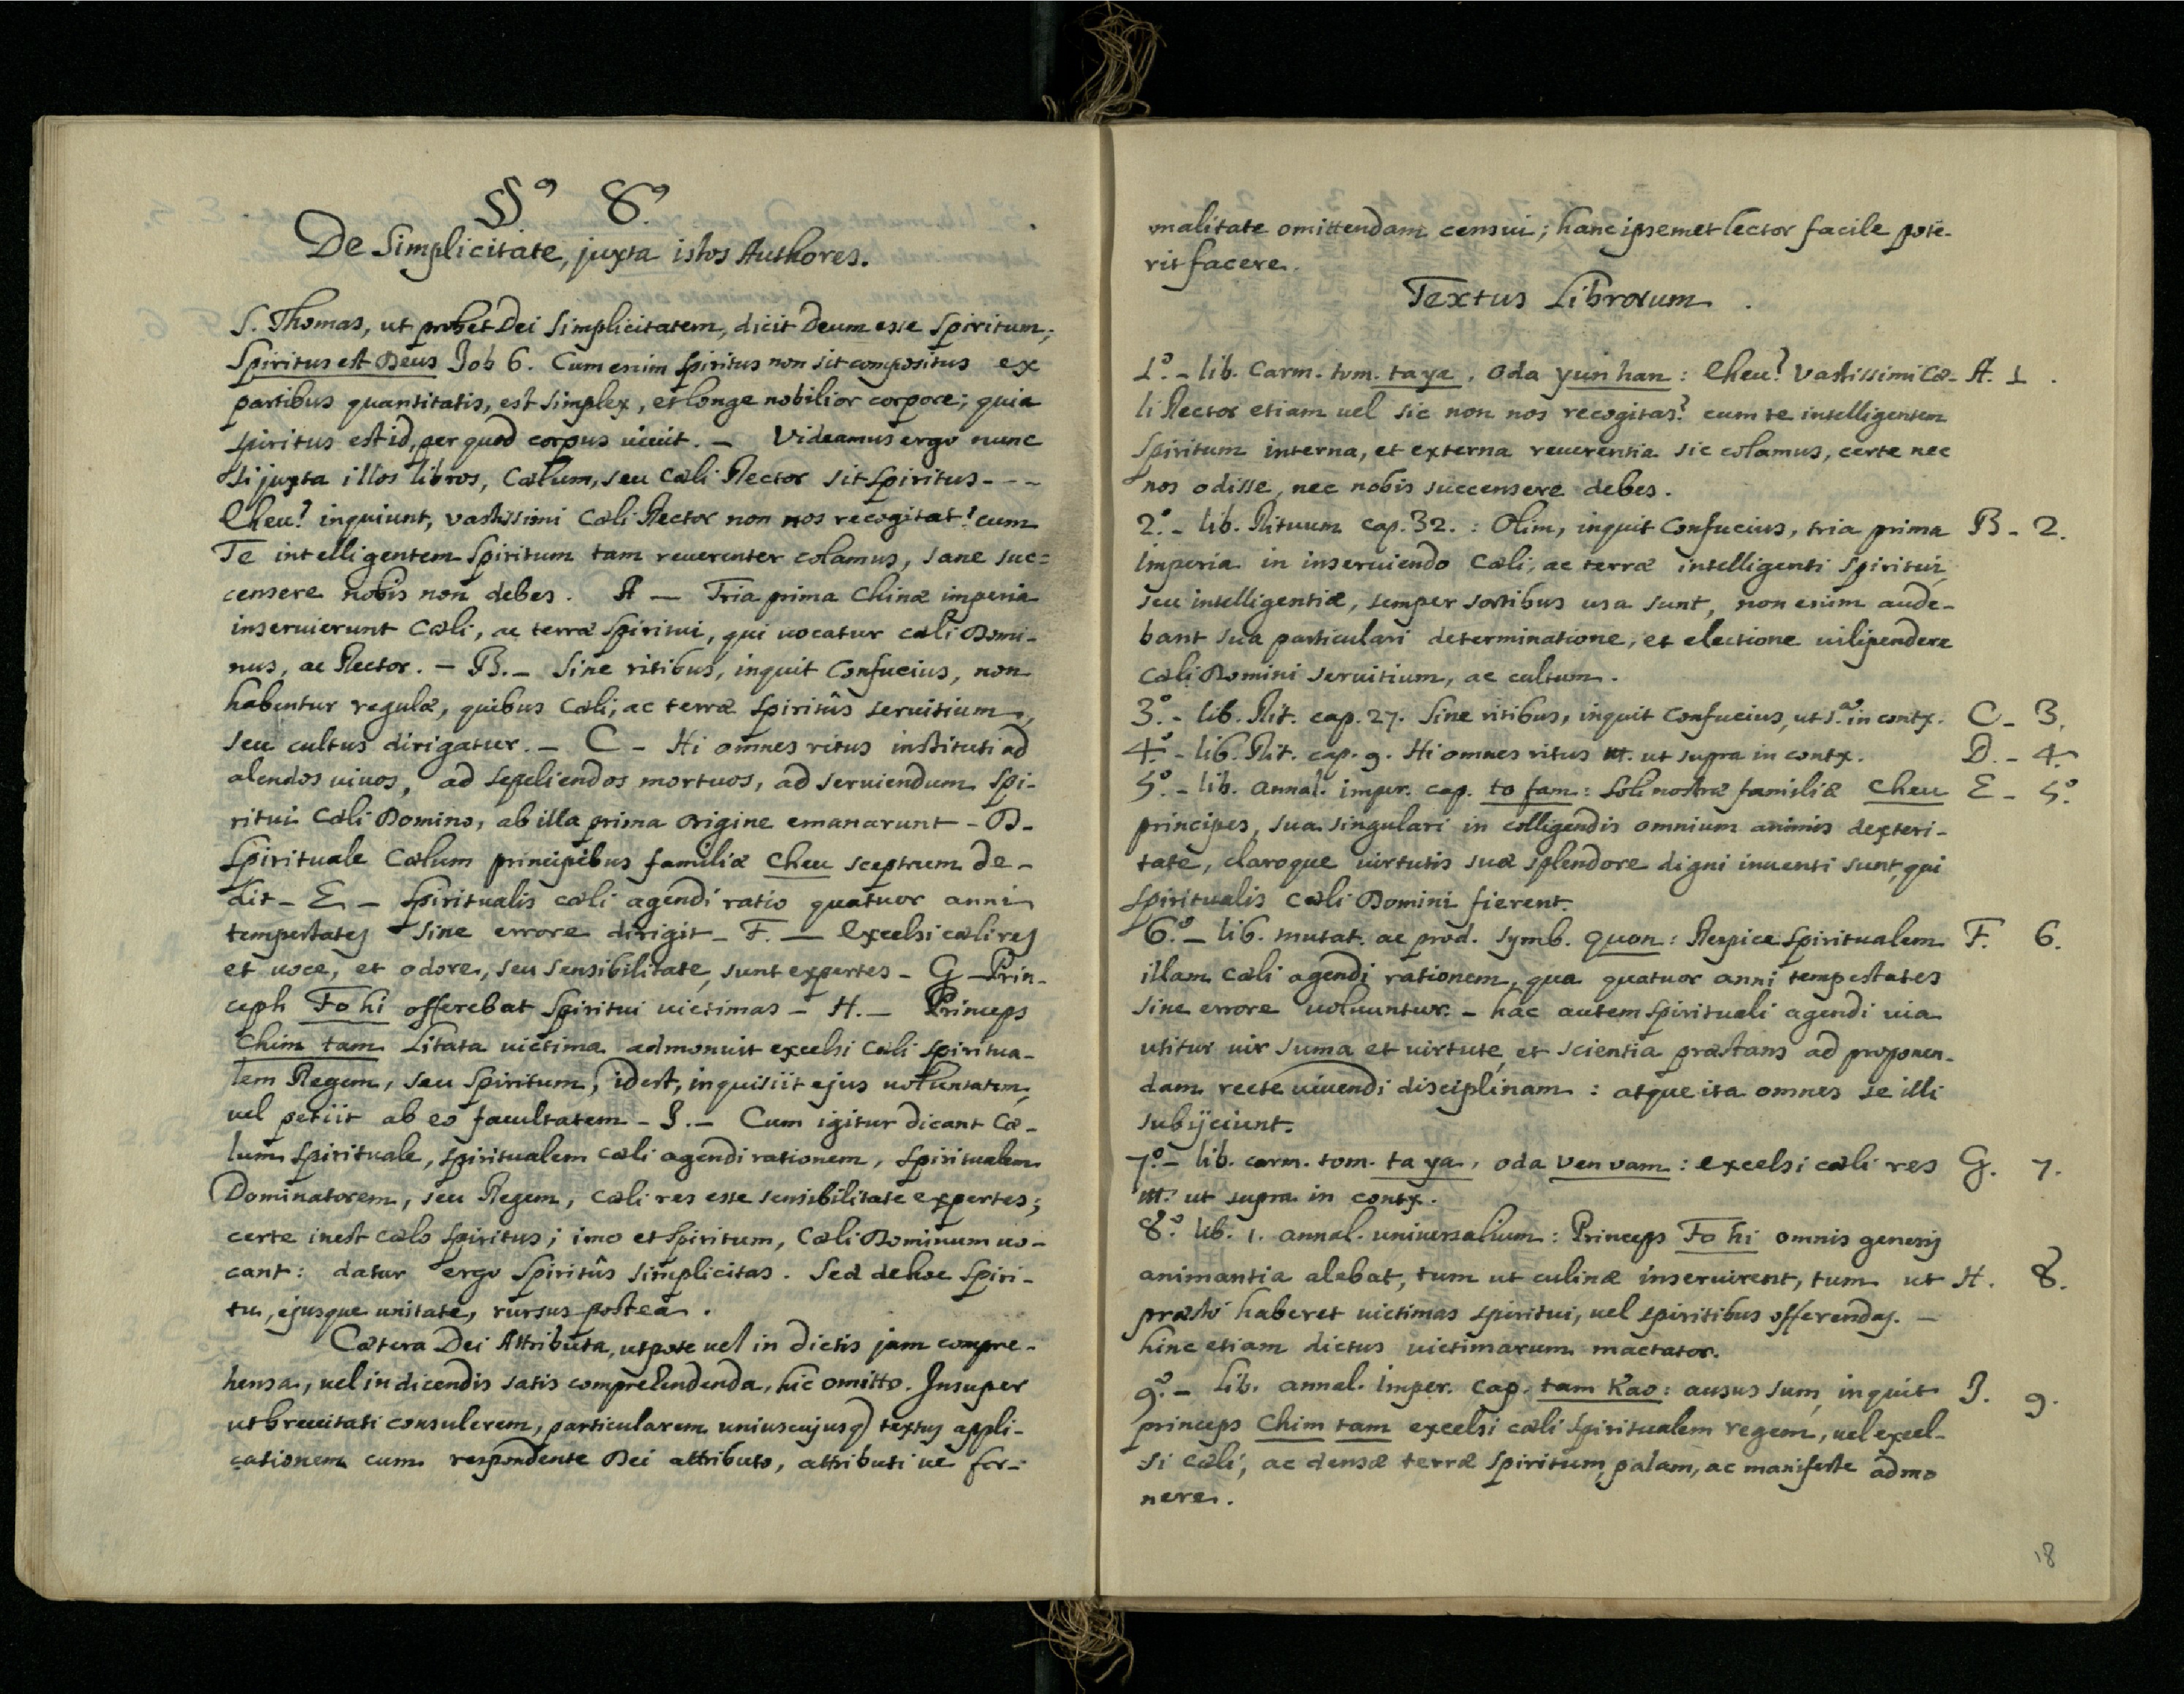 §º 8º
De Simplicitate, juxta istos Authores.
S. Thomas, ut probet Dei Simplicitatem, dicit Deum esse Spiritum;
Spiritus est Deus Job 6. Cum enim Spiritus non sit compositus ex
partibus quantitatis, est simplex, et longe nobilior corpore; quia
spiritus est id, per quod corpus uiuit. – Videamus ergo nunc
si juxta illos libros, Cælum, seu Cæli Rector sit Spiritus - - -
Eheu! inquiunt, vastissimi Cæli Rector non nos recogitat? cum
Te intelligentem Spiritum tam reuerenter colamus, sane suc=
censere nobis non debes. A — Tria prima Chinæ imperia
inseruierunt Cæli, ac terræ Spiritui, qui uocatur cæli Domi-
nus, ac Rector. – B. – Sine ritibus, inquit Confucius, non
habentur regulæ, quibus Cæli, ac terræ Spiritûs seruitium,
seu cultus dirigatur. – C – Hi omnes ritus instituti ad
alendos uiuos, ad sepeliendos mortuos, ad seruiendum Spi-
ritui Cæli Domino, ab illa prima origine emanarunt – D –
Spirituale Cælum principibus familiæ Cheu sceptrum de-
dit – E – Spiritualis cæli agendi ratio quatuor anni
tempestates sine errore dirigit – F. — Excelsi cæli res
et uoce, et odore, seu sensibilitate, sunt expertes – G – Prin-
ceps Fo hi offerebat Spiritui uictimas – H. – Princeps
Chim tam Litata uictima admonuit excelsi Cæli Spiritua-
lem Regem, seu Spiritum, idest, inquisiit ejus uoluntatem,
uel petiit ab eo facultatem – I. – Cum igitur dicant Cæ-
lum Spirituale, spiritualem cæli agendi rationem, Spiritualem
Dominatorem, seu Regem, cæli res esse sensibilitate expertes;
certe inest cælo Spiritus; imo et Spiritum, Cæli Dominum uo-
cant: datur ergo Spiritûs Simplicitas. Sed de hoc Spiri-
tu, ejusque unitate, rursus postea.
Cætera Dei Attributa, utpote uel in dictis jam compre-
hensa, uel in dicendis satis comprehendenda, hic omitto. Insuper
ut breuitati consulerem, particularem uniuscujusq) textus appli-
cationem cum respondente Dei attributo, attributi ue for-
malitate omittendam censui; hanc ipsemet lector facile pote-
rit facere.
Textus Librorum.
1º. – lib. Carm. tom. ta ya, Oda yun han: Eheu! Vastissimi Cæ- A. 1.
li Rector etiam uel sic non nos recogitas? cum te intelligentem
Spiritum interna, et externa reuerentia sic colamus, certe nec
nos odisse, nec nobis succensere debes.
2º. – lib. Rituum cap. 32.: Olim, inquit Confucius, tria prima B – 2.
Imperia in inseruiendo Cæli, ac terræ intelligenti Spiritui,
seu intelligentiæ, semper sortibus usa sunt, non enim aude-
bant sua particulari determinatione, et electione uilipendere
Cæli Domini seruitium, ac cultum.
3º. – lib. Rit. cap. 27. Sine ritibus, inquit Confucius, ut s.ª in contx. C – 3.
4º. – lib. Rit. cap. 9. Hi omnes ritus ut supra in contx. D. – 4.
5º. – lib. annal. imper. cap. to fam: Soli nostræ familiæ Cheu E – 5º.
principes, sua singulari in colligendis omnium animis dexteri-
tate, claroque uirtutis suæ splendore digni inuenti sunt, qui
Spiritualis Cæli Domini fierent.
6º. – lib. mutat. ac prod. symb. quon: Respice Spiritualem F. 6.
illam cæli agendi rationem, qua quatuor anni tempestates
sine errore uoluuntur. – hac autem spirituali agendi uia
utitur uir suma et uirtute, et scientia præstans ad proponen-
dam recte uiuendi disciplinam: atque ita omnes se illi
subijciunt.
7º. – lib. carm. tom. ta ya, oda ven vam: excelsi cæli res G. 7.
ut supra in contx.
8º. lib. 1. annal. uniuersalium: Princeps Fo hi omnis generis
animantia alebat, tum ut culinæ inseruirent, tum ut H. 8.
præsto haberet uictimas spiritui, uel spiritibus offerendas. –
hinc etiam dictus uictimarum mactator.
9º. – Lib. annal. Imper. cap. tam Kao: ausus sum, inquit I. 9.
princeps Chim tam excelsi cæli Spiritualem regem, uel excel-
si cæli, ac densæ terræ Spiritum, palam, ac manifeste admo
nere.
18